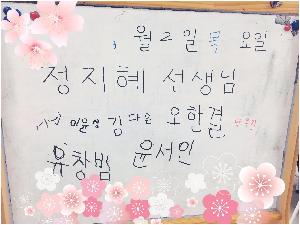 월 2 일 목 요일
정지혜 선생님
서 이윤성 김다은 오한결
유창범 윤서인